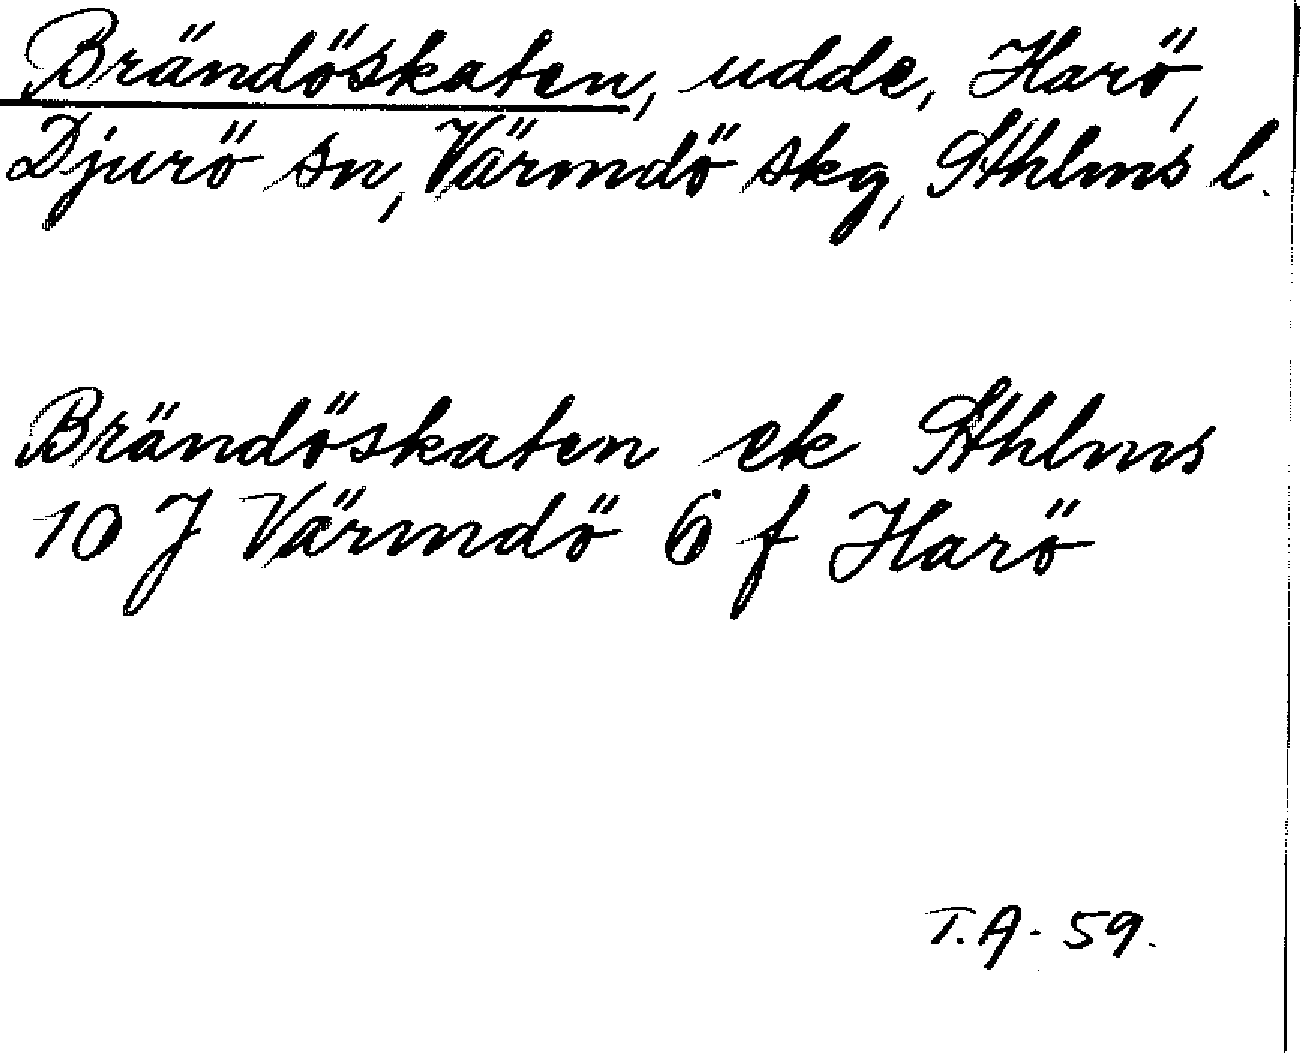 Brändöskaten, udde, Harö,
Djurö sn, Värmdö skg, Sthlms l.
Brändöskaten ek Sthlms
10 J Värmdö 6 f Harö
T.A-59.